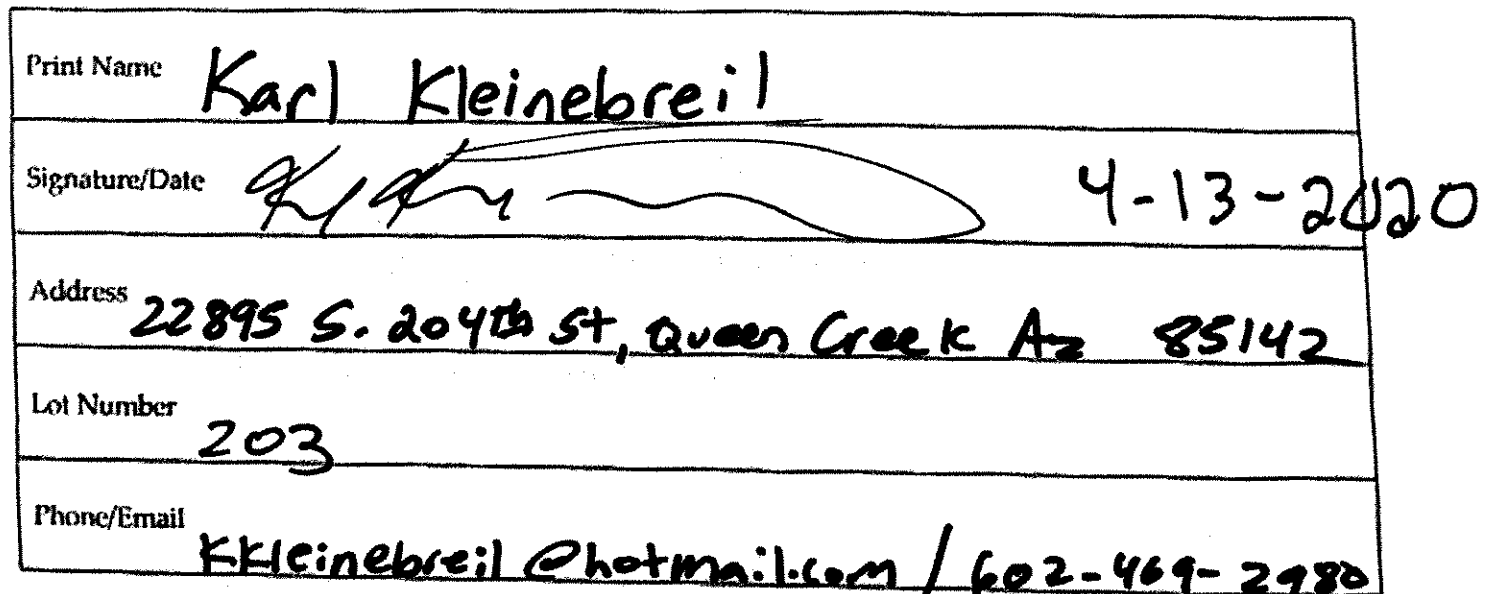 Print Name Karl Kleinebreil
Signature/Date 4-13-2020
Address 22895 S. 204th St, Queen Creek Az 85142
Lot Number 203
Phone/Email KKleinebreil@hotmail.com / 602-469-2980